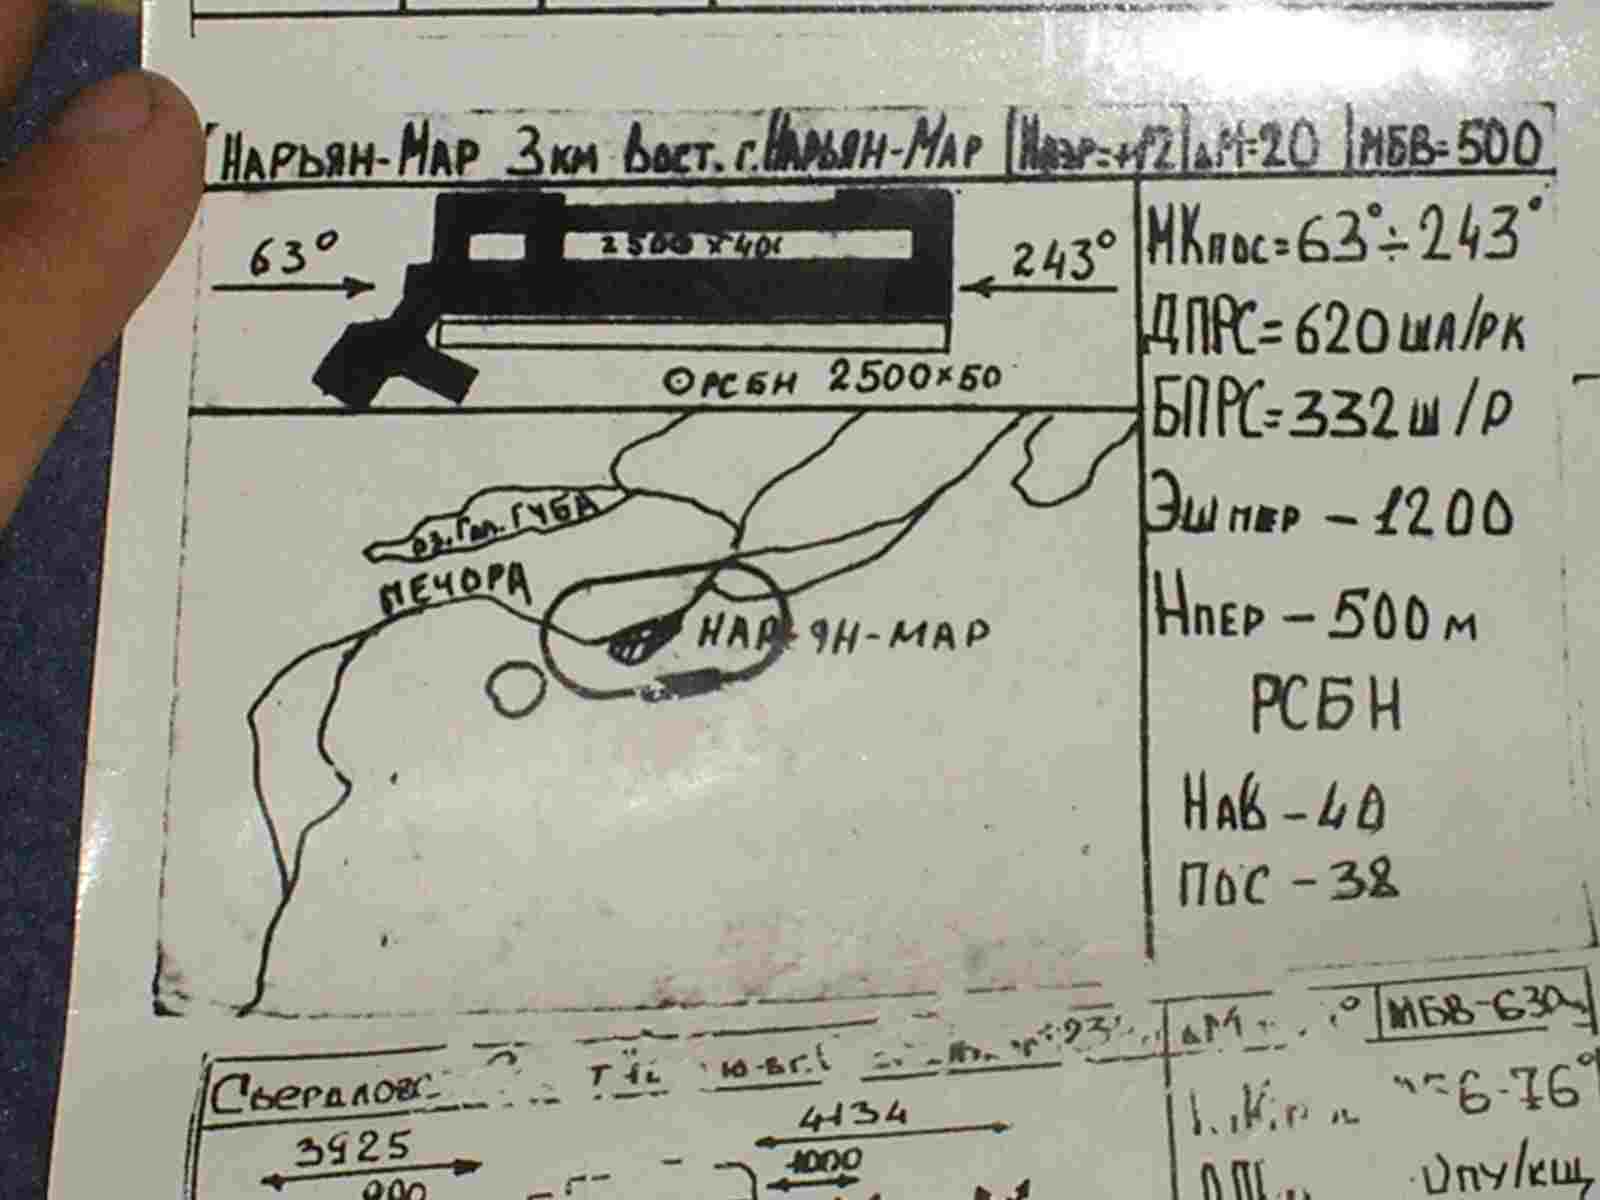 НАРЬЯН-МАР 3км Вост. г.НАРЬЯН-МАР Наэр=+12 ΔМ=20 МБВ=500
63° 2500×40 243°
РСБН 2500×50
МКпос=63°÷243°
ДПРС=620 ША/РК
БПРС=332 Ш/Р
Эш пер – 1200
Нпер – 500 м
РСБН
НАВ – 40
ПОС – 38
оз. Гол. ГУБА
ПЕЧОРА
НАР ЯН-МАР
Свердловс ю-в г. МБВ-630
3925 4134
1000
6-76°